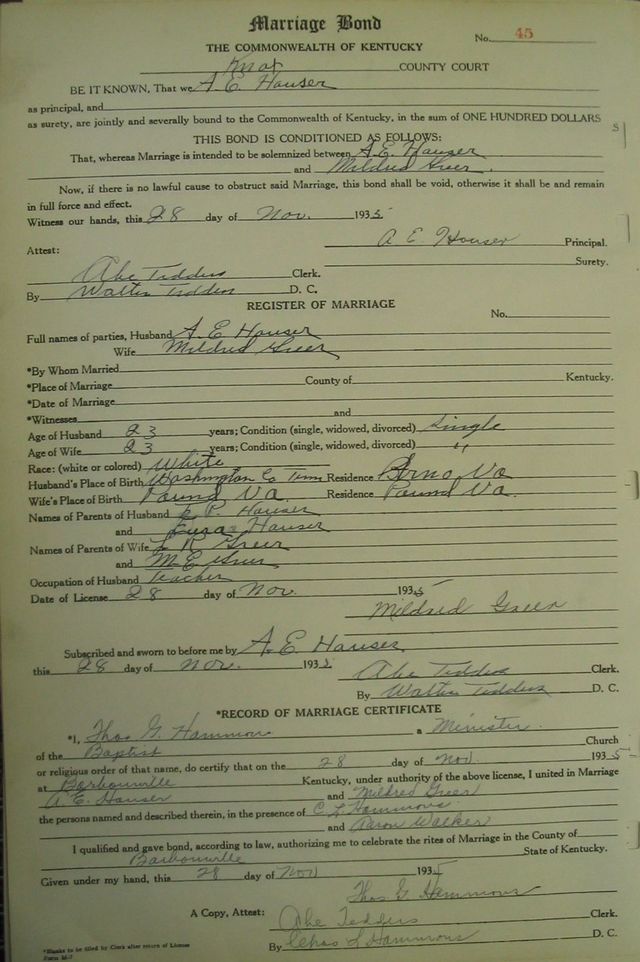 Marriage Bond
No. 45
THE COMMONWEALTH OF KENTUCKY
Knox COUNTY COURT
BE IT KNOWN, That we A. E. Hauser
as principal, and
as surety, are jointly and severally bound to the Commonwealth of Kentucky, in the sum of ONE HUNDRED DOLLARS
THIS BOND IS CONDITIONED AS FOLLOWS:
That, whereas Marriage is intended to be solemnized between A. E. Hauser
and Mildred Greer.
Now, if there is no lawful cause to obstruct said Marriage, this bond shall be void, otherwise it shall be and remain
in full force and effect.
Witness our hands, this 28 day of Nov. 1935
A. E. Houser Principal.
Attest: Surety.
Abe Tedders Clerk.
By Walter Tedders D. C.
REGISTER OF MARRIAGE
No.
Full names of parties, Husband A. E. Hauser
Wife Mildred Greer
*By Whom Married
*Place of Marriage County of Kentucky.
*Date of Marriage
*Witnesses and
Age of Husband 23 years; Condition (single, widowed, divorced) Single
Age of Wife 23 years; Condition (single, widowed, divorced) "
Race: (white or colored) White
Husband's Place of Birth Washington Co Tenn Residence Va
Wife's Place of Birth Pound Va. Residence Pound Va.
Names of Parents of Husband P. Hauser
and Hauser
Names of Parents of Wife R Greer
and M. E. Greer
Occupation of Husband Teacher
Date of License 28 day of Nov. 1935
Mildred Greer
Subscribed and sworn to before me by A. E. Hauser
this 28 day of Nov. 1935
Abe Tedders Clerk.
By Walter Tedders D. C.
*RECORD OF MARRIAGE CERTIFICATE
*I, Thos G. Hammons a Minister
of the Baptist Church
or religious order of that name, do certify that on the 28 day of Nov. 1935
at Barbourville Kentucky, under authority of the above license, I united in Marriage
A. E. Hauser and Mildred Greer
the persons named and described therein, in the presence of C. L. Hammons.
and Aaron Walker
I qualified and gave bond, according to law, authorizing me to celebrate the rites of Marriage in the County of
Barbourville State of Kentucky.
Given under my hand, this 28 day of Nov 1935
Thos G Hammons
A Copy, Attest: Abe Tedders Clerk.
By Chas L Hammons D. C.
*Blanks to be filled by Clerk after return of License